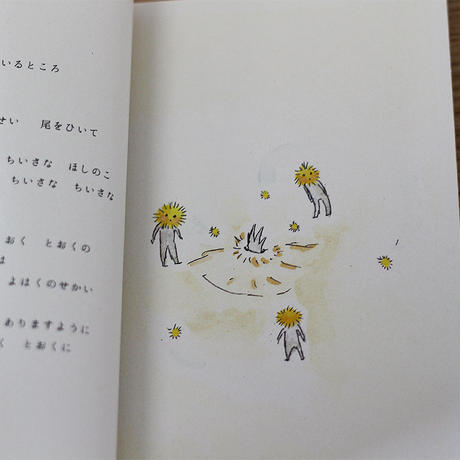 いるところ
せい　尾をひいて
ちいさな　ほしのこ
ちいさな　ちいさな
おく　とおくの
は
よはくのせかい
ありますように
く　とおくに